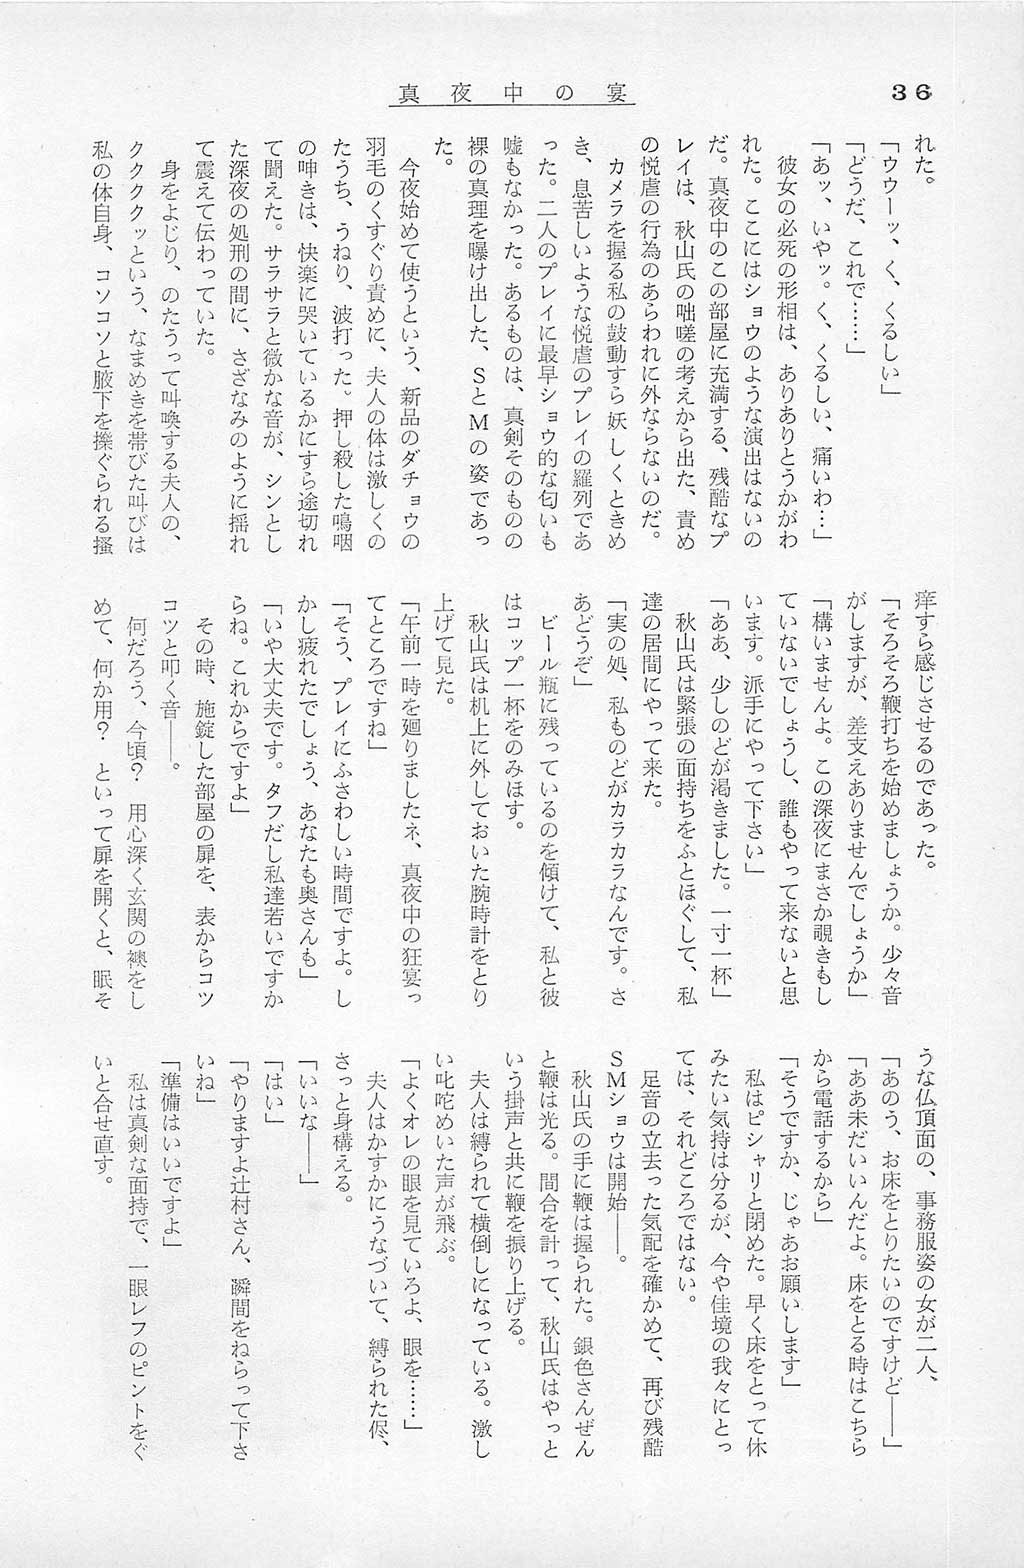 36
真夜中の宴
れた。
「ウウーッ、く、くるしい」
「どうだ、これで……」
「あッ、いやッ。く、くるしい、痛いわ…」
彼女の必死の形相は、ありありとうかがわ
れた。ここにはショウのような演出はないの
だ。真夜中のこの部屋に充満する、残酷なプ
レイは、秋山氏の咄嗟の考えから出た、責め
の悦虐の行為のあらわれに外ならないのだ。
カメラを握る私の鼓動すら妖しくときめ
き、息苦しいような悦虐のプレイの羅列であ
った。二人のプレイに最早ショウ的な匂いも
嘘もなかった。あるものは、真剣そのものの
裸の真理を曝け出した、SとMの姿であっ
た。
今夜始めて使うという、新品のダチョウの
羽毛のくすぐり責めに、夫人の体は激しくの
たうち、うねり、波打った。押し殺した嗚咽
の呻きは、快楽に哭いているかにすら途切れ
て聞えた。サラサラと微かな音が、シンとし
た深夜の処刑の間に、さざなみのように揺れ
て震えて伝わっていた。
身をよじり、のたうって叫喚する夫人の、
クククククッという、なまめきを帯びた叫びは
私の体自身、コソコソと腋下を擽ぐられる掻
痒すら感じさせるのであった。
「そろそろ鞭打ちを始めましょうか。少々音
がしますが、差支えありませんでしょうか」
「構いませんよ。この深夜にまさか覗きもし
ていないでしょうし、誰もやって来ないと思
います。派手にやって下さい」
「ああ、少しのどが渇きました。一寸一杯」
秋山氏は緊張の面持ちをふとほぐして、私
達の居間にやって来た。
「実の処、私ものどがカラカラなんです。さ
あどうぞ」
ビール瓶に残っているのを傾けて、私と彼
はコップ一杯をのみほす。
秋山氏は机上に外しておいた腕時計をとり
上げて見た。
「午前一時を廻りましたネ、真夜中の狂宴っ
てところですね」
「そう、プレイにふさわしい時間ですよ。し
かし疲れたでしょう、あなたも奥さんも」
「いや大丈夫です。タフだし私達若いですか
らね。これからですよ」
その時、施錠した部屋の扉を、表からコツ
コツと叩く音――。
何だろう、今頃？　用心深く玄関の襖をし
めて、何か用？　といって扉を開くと、眠そ
うな仏頂面の、事務服姿の女が二人、
「あのう、お床をとりたいのですけど――」
「ああ未だいいんだよ。床をとる時はこちら
から電話するから」
「そうですか、じゃあお願いします」
私はピシャリと閉めた。早く床をとって休
みたい気持は分るが、今や佳境の我々にとっ
ては、それどころではない。
足音の立去った気配を確かめて、再び残酷
SMショウは開始――。
秋山氏の手に鞭は握られた。銀色さんぜん
と鞭は光る。間合を計って、秋山氏はやっと
いう掛声と共に鞭を振り上げる。
夫人は縛られて横倒しになっている。激し
い叱咤めいた声が飛ぶ。
「よくオレの眼を見ていろよ、眼を……」
夫人はかすかにうなづいて、縛られた侭、
さっと身構える。
「いいな――」
「はい」
「やりますよ辻村さん、瞬間をねらって下さ
いね」
「準備はいいですよ」
私は真剣な面持で、一眼レフのピントをぐ
いと合せ直す。